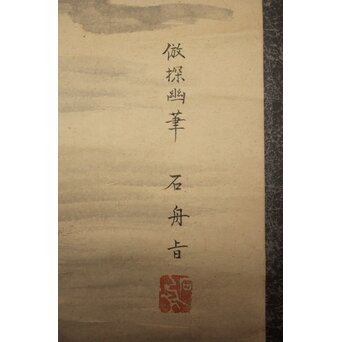 倣探幽筆 石舟旨